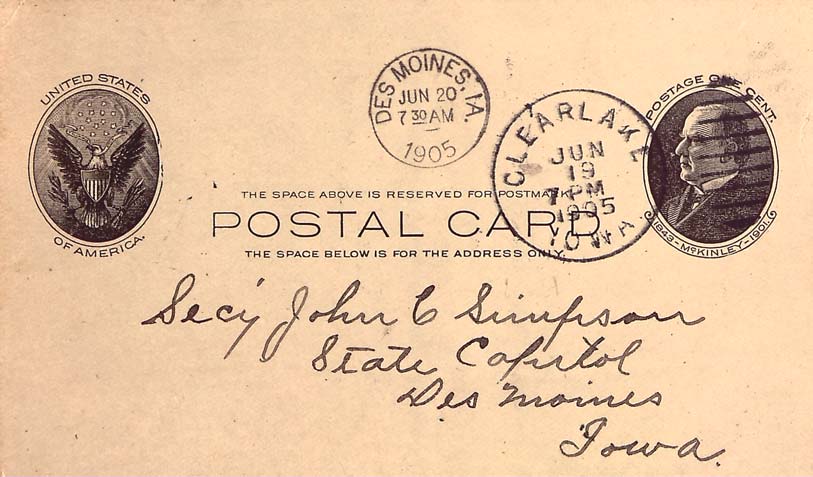 UNITED STATES
OF AMERICA.
DES MOINES, IA.
JUN 20
7 30 AM
1905
CLEARLAKE
JUN
19
7 PM
1905
IOWA
POSTAGE ONE CENT.
1843-McKINLEY-1901.
THE SPACE ABOVE IS RESERVED FOR POSTMARK.
POSTAL CARD
THE SPACE BELOW IS FOR THE ADDRESS ONLY.
Secy John C Simpson
State Capitol
Des Moines
Iowa.